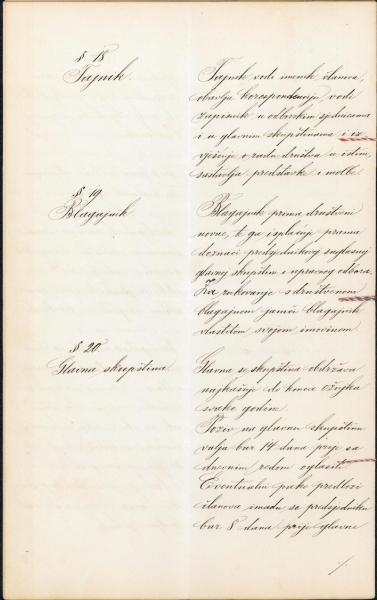 § 18
Tajnik.
Tajnik vodi imenik članova,
obavlja korespondenciju, vodi
zapisnik u odborskim sjednicama
i u glavnim skupštinama i iz
vješćuje o radu društva u istim,
sastavlja predstavke i molbe.
§ 19
Blagajnik
Blagajnik prima društveni
novac, te ga isplaćuje prama
doznaci predsjednikovoj suglasnoj
glavnoj skupštini i upravnog odbora.
Za rukovanje s društvenom
blagajnom jamči blagajnik
vlastitom svojom imovinom.
§ 20.
Glavna skupština
Glavna se skupština obdržava
najkašnje do konca ožujka
svake godine.
Poziv na glavnu skupštinu
valja bar 14 dana prije sa
dnevnim redom oglasiti.
Eventualni pako predlozi
članova imadu se predsjedniku
bar 8 dana prije glavne